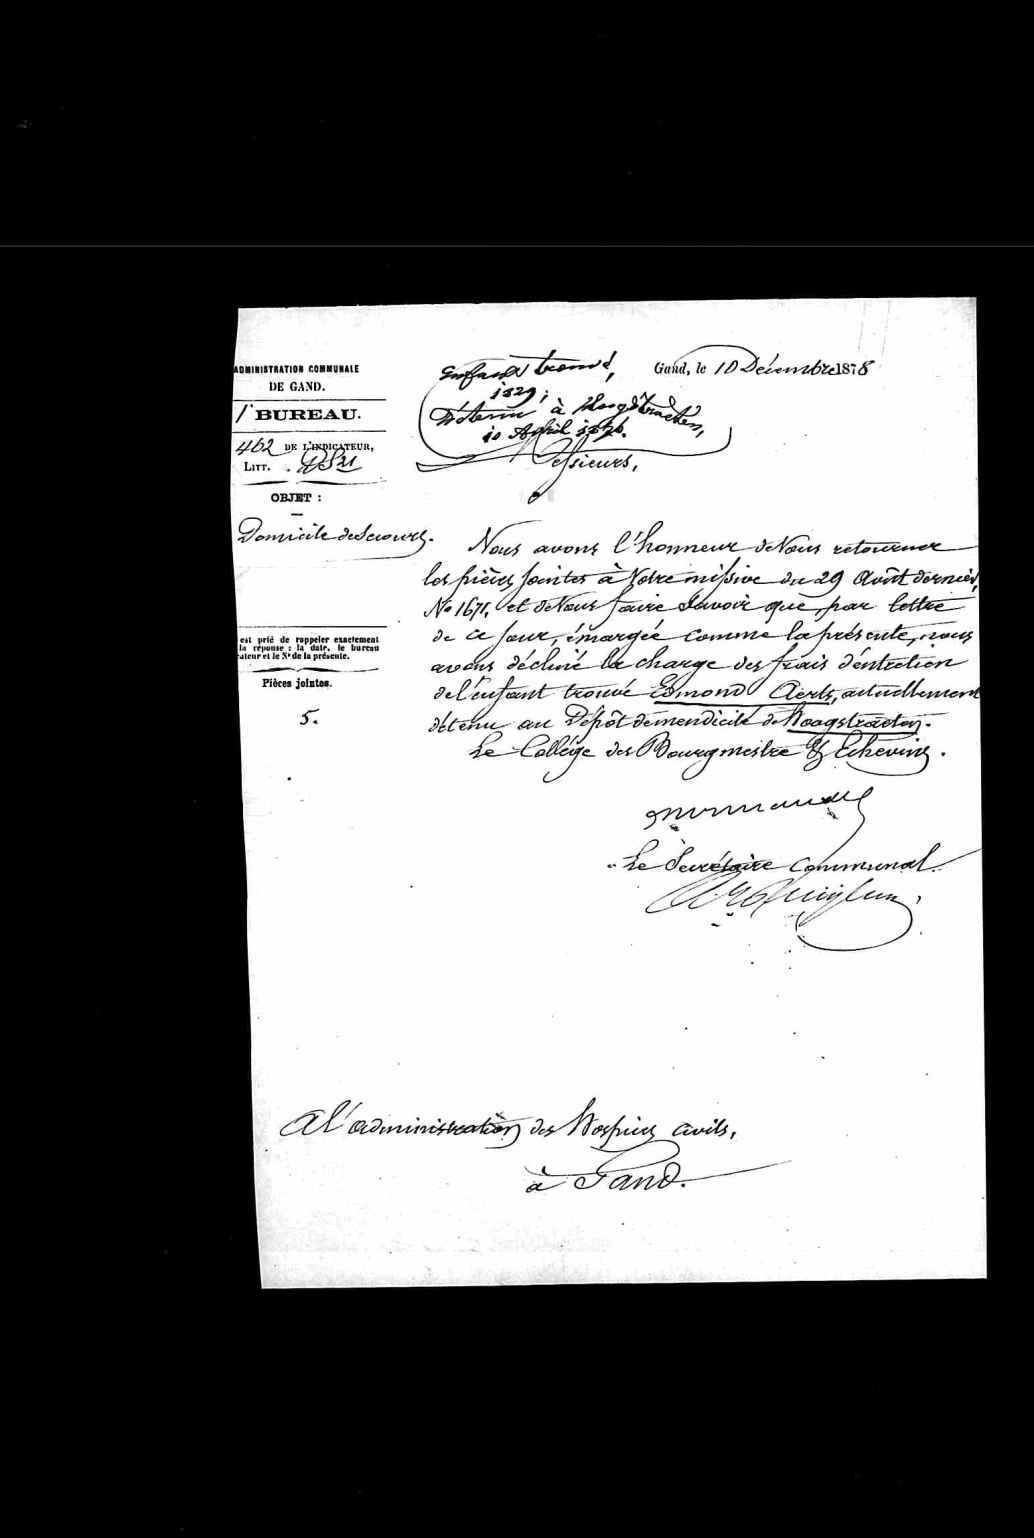 ADMINISTRATION COMMUNALE
DE GAND.
1r BUREAU.
462 DE L'INDICATEUR,
LITT.
OBJET :
Domicile de Secours.
est prié de rappeler exactement
la réponse : la date, le bureau
cateur et le No de la présente.
Pièces jointes.
5.
Enfant trouvé,
1529;
Détenu à Hoogstraeten,
10 Avril 1876.
Gand, le 10 Décembre 1878
Messieurs,
Nous avons l'honneur de Vous retourner
les pièces jointes à Votre missive du 29 Août dernier,
No 1671, et de Vous faire savoir que, par lettre
de ce jour, émargée comme la présente, nous
avons décliné la charge des frais d'entretien
de l'enfant trouvé Edmond Aerts, actuellement
détenu au Dépôt de mendicité de Hoogstraeten.
Le Collége des Bourgmestre & Echevins.
Le Secrétaire communal.
A l'administration des Hospices civils,
à Gand.